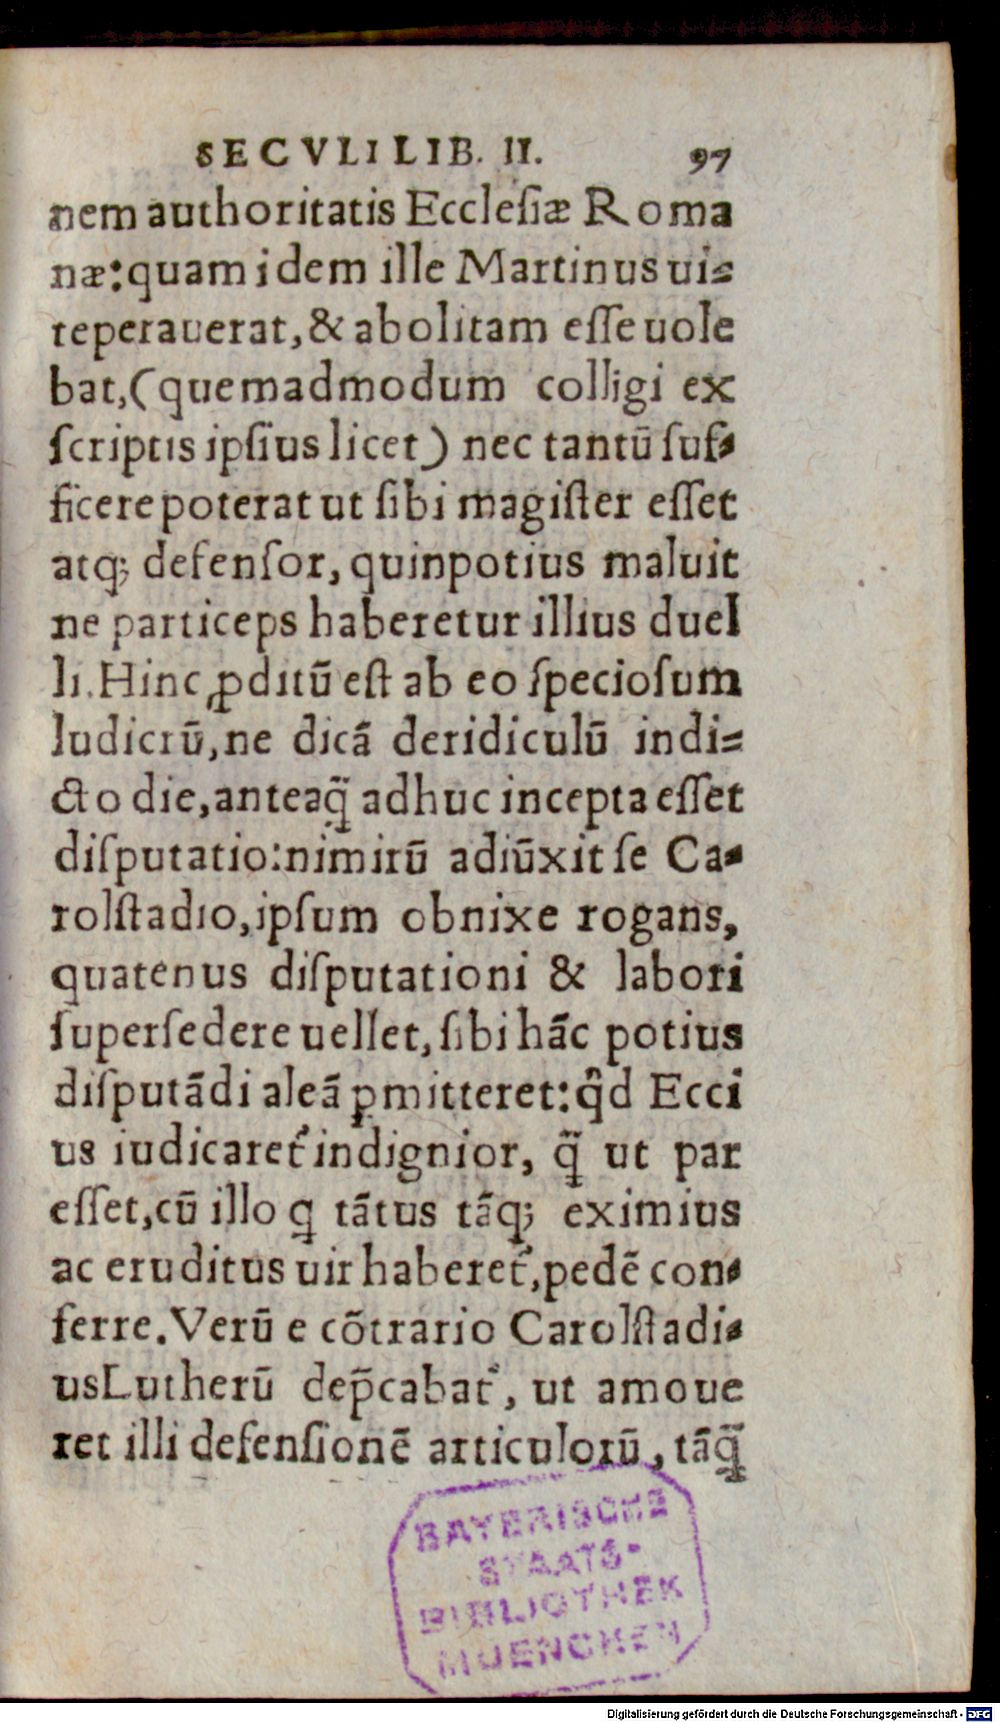 SECVLI LIB. II. 97
nem authoritatis Ecclesiæ Roma
næ: quam idem ille Martinus ui⸗
teperauerat, & abolitam eſſe uole
bat, (quemadmodum colligi ex
ſcriptis ipſius licet) nec tantū ſuf⸗
ficere poterat ut ſibi magiſter eſſet
atq; defenſor, quinpotius maluit
ne particeps haberetur illius duel
li. Hinc ꝓditū eſt ab eo ſpecioſum
ludicrū, ne dicā deridiculū indi⸗
cto die, anteaq̃ adhuc incepta eſſet
diſputatio: nimirū adiūxit ſe Ca⸗
rolſtadio, ipſum obnixe rogans,
quatenus diſputationi & labori
ſuperſedere uellet, ſibi hāc potius
diſputādi aleā ꝑmitteret: qd̃ Ecci
us iudicaret᷑ indignior, q̃ ut par
eſſet, cū illo q tātus tāq; eximius
ac eruditus uir haberet᷑, pedē con⸗
ferre. Verū e cōtrario Carolſtadi⸗
us Lutherū dep̃cabat᷑, ut amoue
ret illi defenſionē articulorū, tāq̃
BAYERISCHE
STAATS-
BIBLIOTHEK
MUENCHEN
Digitalisierung gefördert durch die Deutsche Forschungsgemeinschaft - DFG